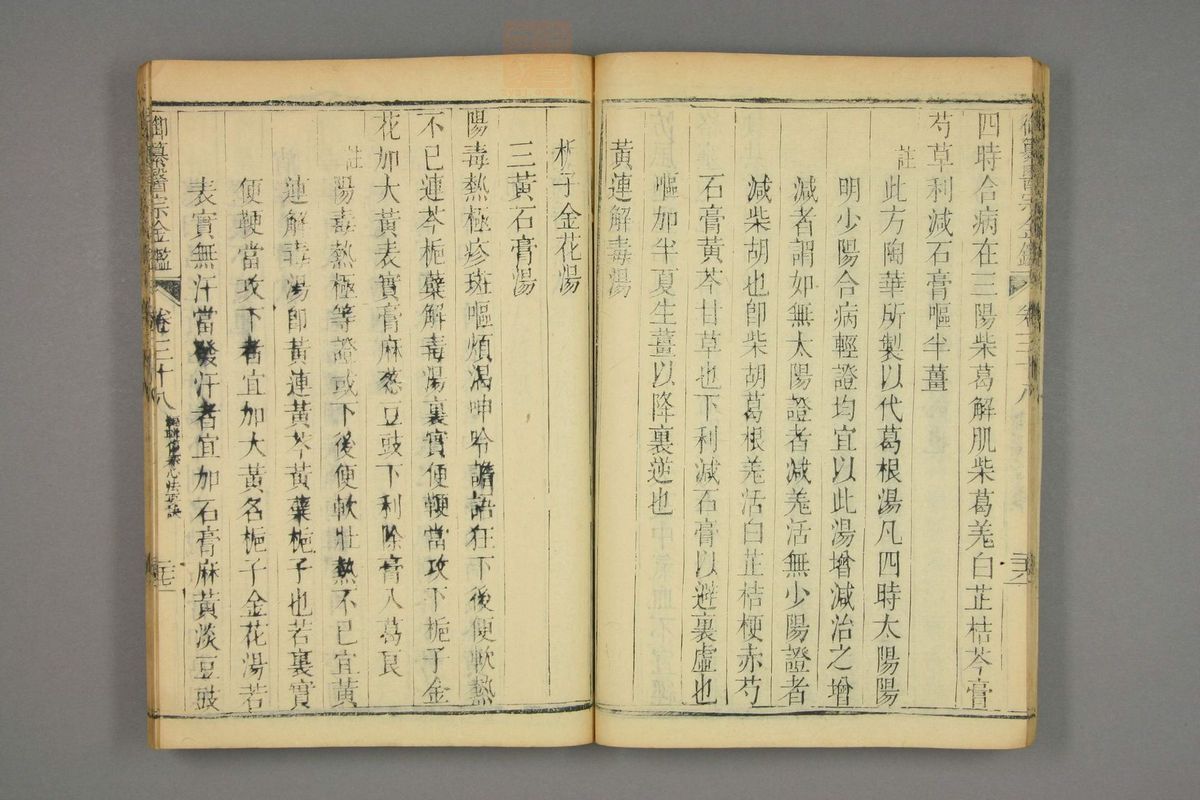 四時合病在三陽柴葛解肌柴葛羗白芷桔芩膏
芍草利減石膏嘔半薑
註
此方陶華所製以代葛根湯凡四時太陽陽
明少陽合病輕證均宜以此湯增減治之增
減者謂如無太陽證者減羗活無少陽證者
減柴胡也卽柴胡葛根羗活白芷桔梗赤芍
石膏黃芩甘草也下利減石膏以避裏虛也
嘔加半夏生薑以降裏逆也
黃連解毒湯
梔子金花湯
三黃石膏湯
陽毒熱極疹斑嘔煩渴呻吟譫語狂下後便軟熱
不已連芩梔蘗解毒湯裏實便鞕當攻下梔子金
花加大黃表實膏麻葱豆豉下利除膏入葛艮
註
陽毒熱極等證或下後便軟壯熱不已宜黃
連解毒湯卽黃連黃芩黃蘗梔子也若裏實
便鞕當攻下者宜加大黃名梔子金花湯若
表實無汗當發汗者宜加石膏麻黃淡豆豉
御纂醫宗金鑑
卷三十八